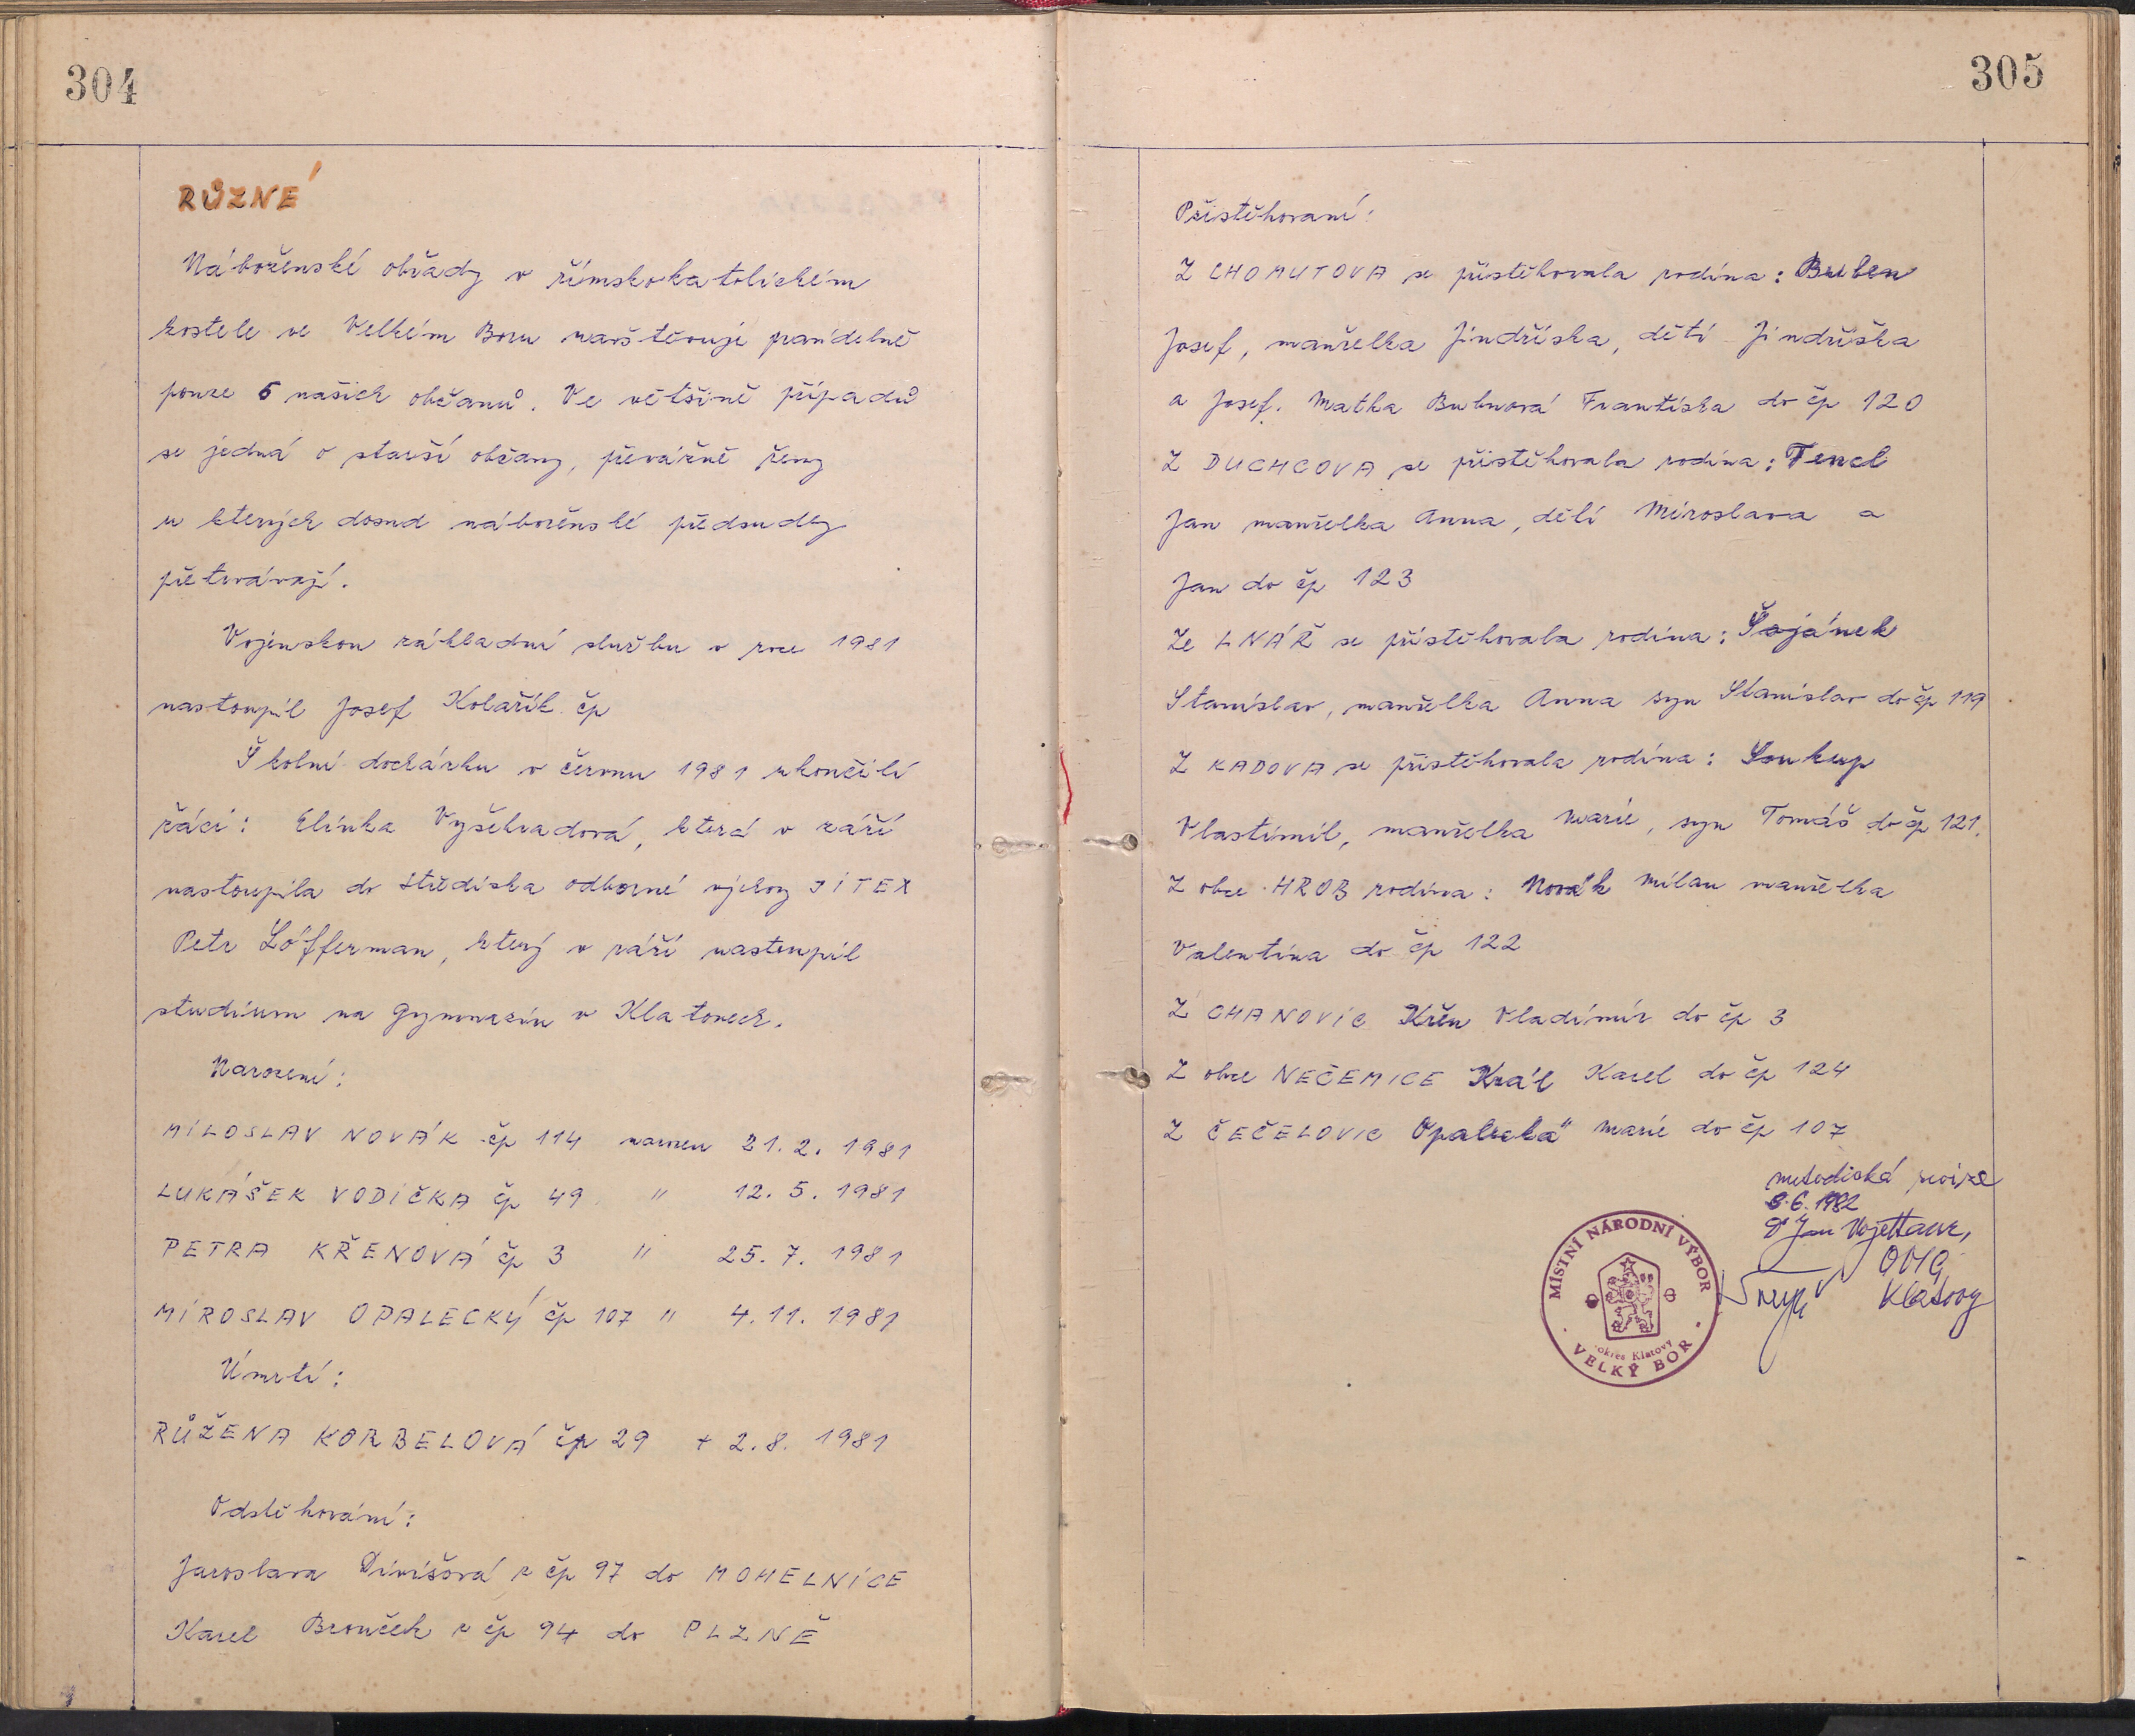 304
RŮZNÉ
Náboženské obřady v římskokatolickém
kostele ve Velkém Boru navštěvuje pravidelně
pouze 5 našich občanů. Ve většině případů
se jedná o starší občany, převážně ženy
u kterých dosud náboženské předsudky
přetrvávají.
Vojenskou základní službu v roce 1981
nastoupil Josef Kolařík čp
Školní docházku v červnu 1981 ukončili
žáci: Elinka Vyšehradová, která v září
nastoupila do střediska odborné výchovy JITEX
Petr Löfferman, který v září nastoupil
studium na Gymnaziu v Klatovech.
Narození:
MILOSLAV NOVÁK čp 114 narozen 21.2. 1981
LUKÁŠEK VODIČKA čp 49 " 12. 5. 1981
PETRA KŘENOVÁ čp 3 " 25. 7. 1981
MIROSLAV OPALECKÝ čp 107 " 4. 11. 1981
Úmrtí:
RŮŽENA KORBELOVÁ čp 29 + 2. 8. 1981
Odstěhování:
Jaroslava Divišová z čp 97 do MOHELNICE
Karel Brouček z čp 94 do PLZNĚ
305
Přistěhovaní:
Z CHOMUTOVA se přistěhovala rodina: Buben
Josef, manželka Jindřiska, děti Jindřiška
a Josef. Matka Bubnová Frantiska do čp 120
Z DUCHCOVA se přistěhovala rodina: Tencl
Jan manželka Anna, děti Miroslava a
Jan do čp 123
Ze LNÁŘ se přistěhovala rodina: Šojánek
Stanislav, manželka Anna syn Stanislav do čp 119
Z KADOVA se přistěhovala rodina: Soukup
Vlastimil, manželka Marie, syn Tomáš do čp 121.
Z obce HROB rodina: Novák Milan manželka
Valentina do čp 122
Z CHANOVIC Křen Vladimír do čp 3
Z obce NEČEMICE Král Karel do čp 124
Z ČEČELOVIC Opalecká Marie do čp 107
metodická revize
8.6. 1982
Dr Jan
Klatovy
MÍSTNÍ NÁRODNÍ VÝBOR
okres Klatovy
VELKÝ BOR